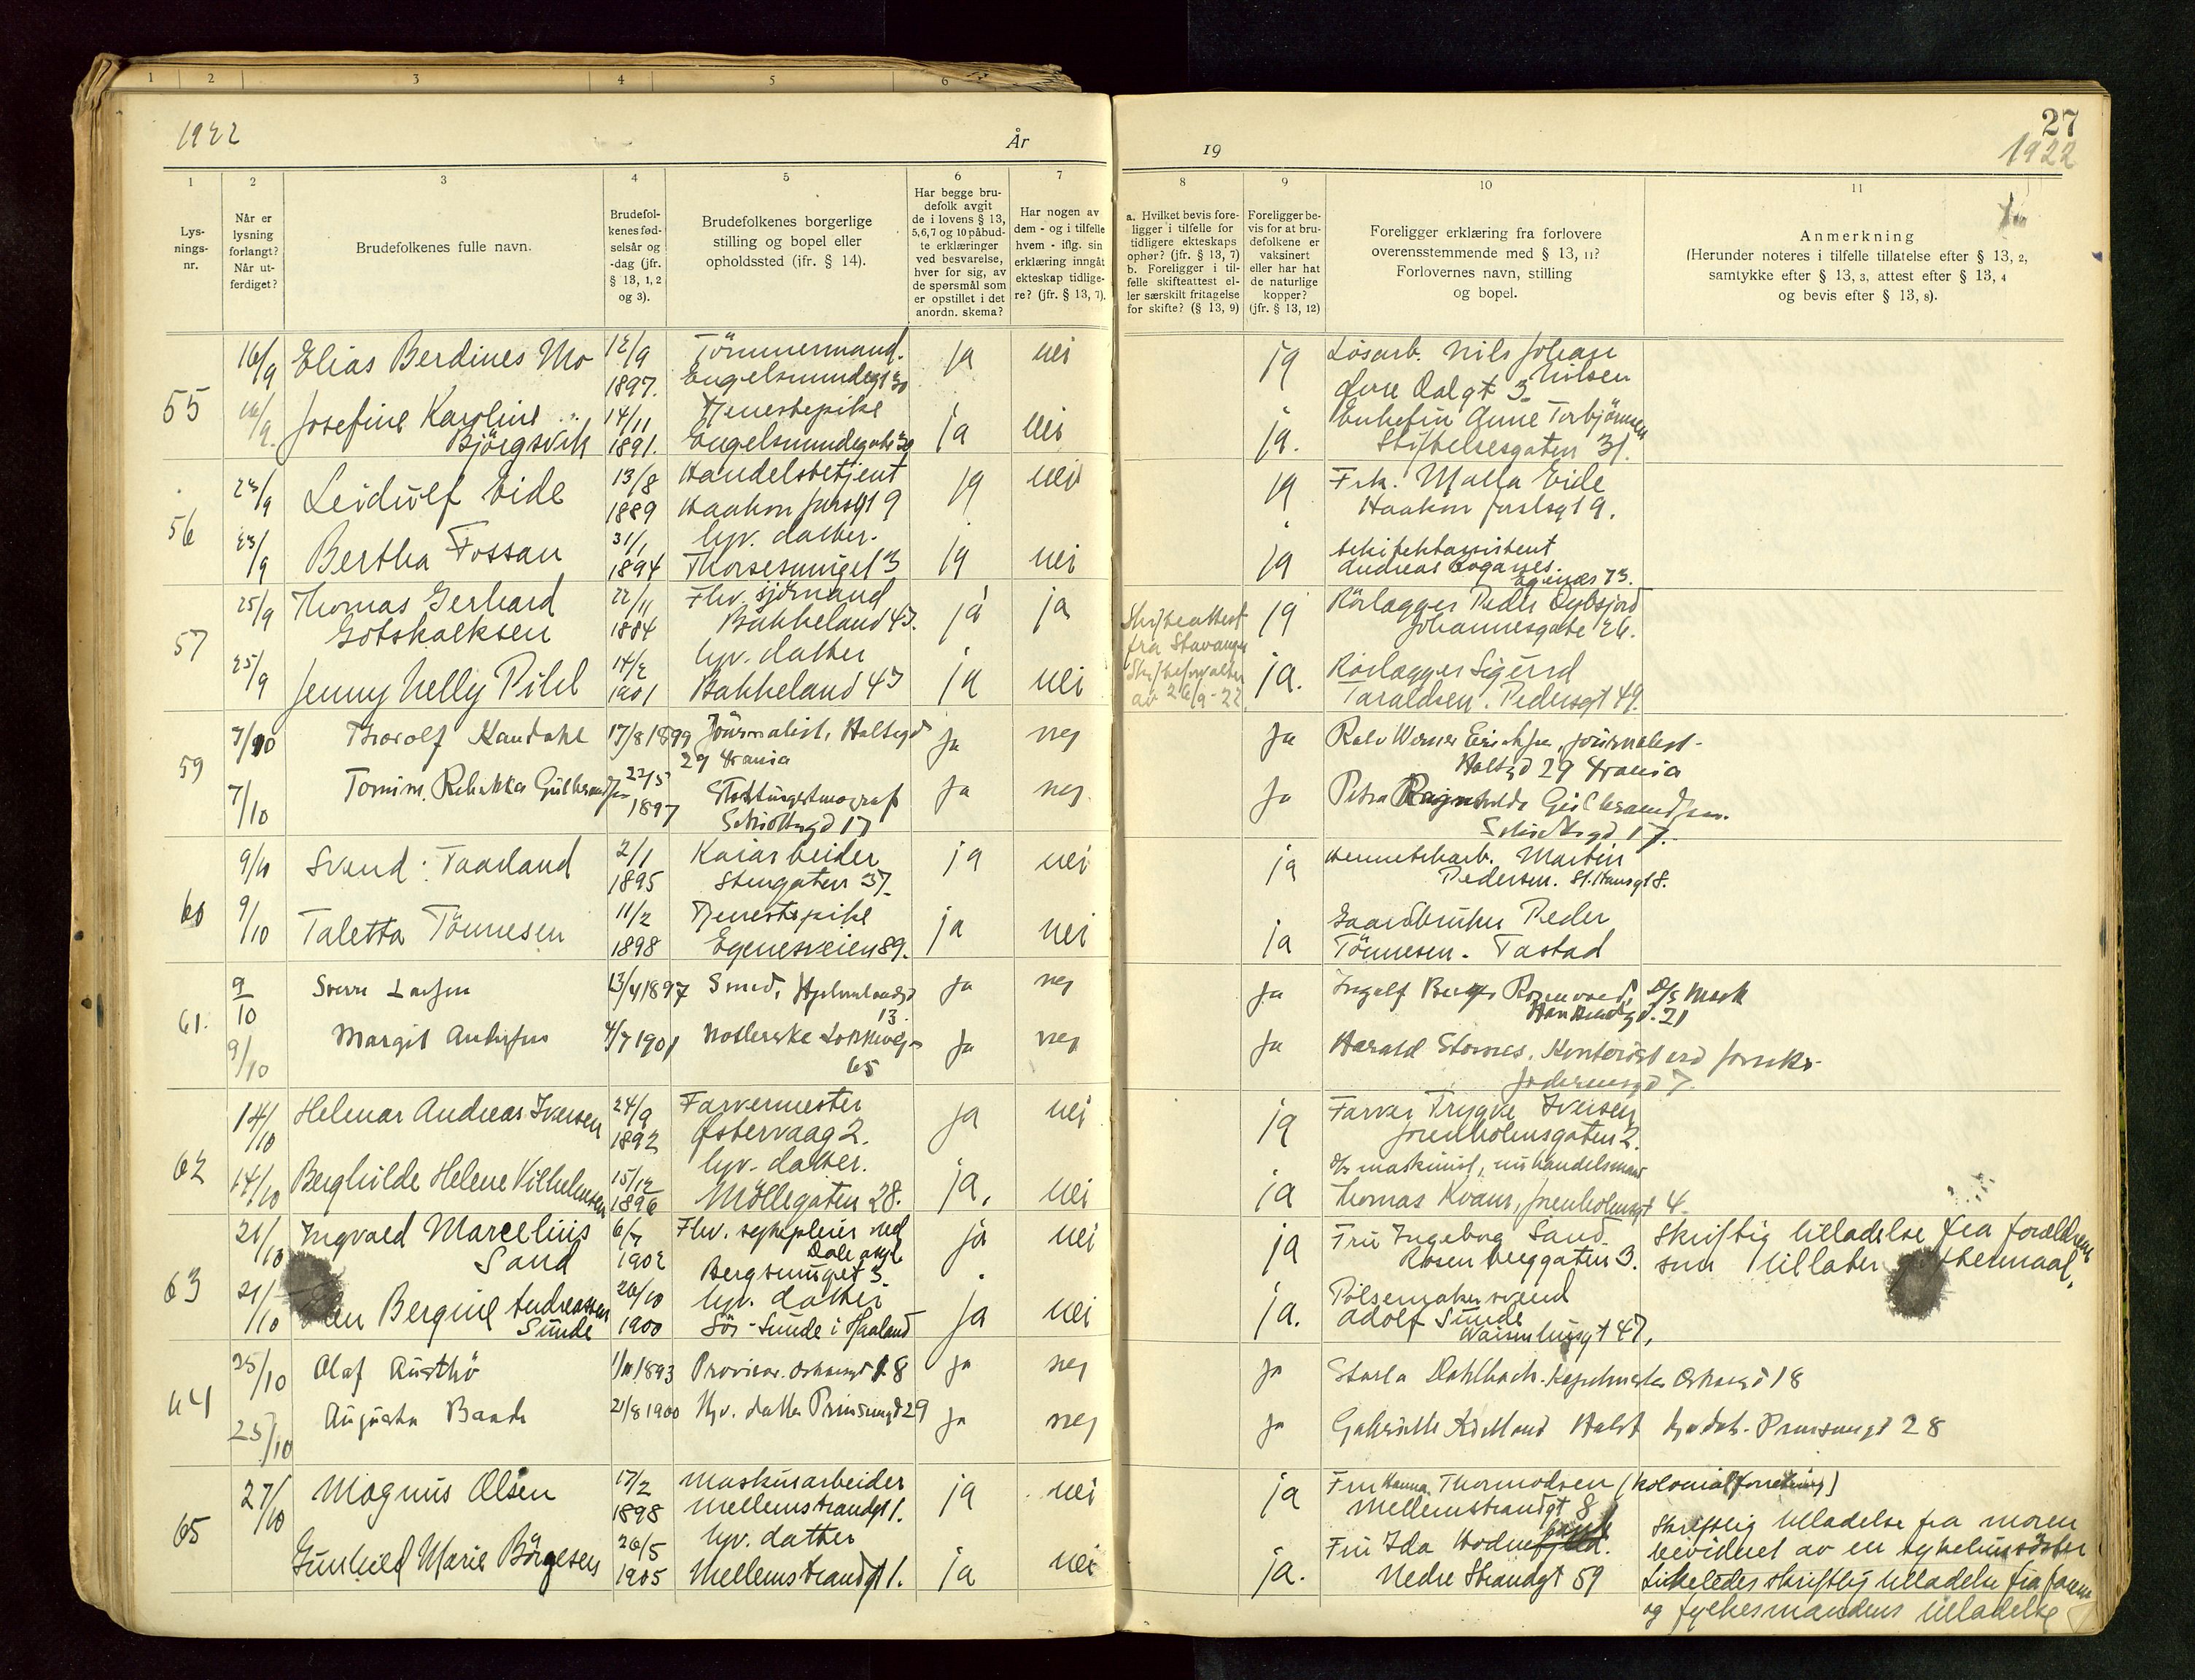 1 2 3 4 5 6
1922 År
19
27
1922
1 2 3 4 5 6 7 8 9 10 11
Lys-
nings-
nr.
Når er
lysning
forlangt?
Når ut-
ferdiget?
Brudefolkenes fulle navn.
Brudefol-
kenes fød-
selsår og
-dag (jfr.
§ 13, 1, 2
og 3).
Brudefolkenes borgerlige
stilling og bopel eller
opholdssted (jfr. § 14).
Har begge bru-
defolk avgit
de i lovens § 13,
5,6,7 og 10 påbud-
te erklæringer
ved besvarelse,
hver for sig, av
de spørsmål som
er opstillet i det
anordn. skema?
Har nogen av
dem - og i tilfelle
hvem - iflg. sin
erklæring inngåt
ekteskap tidlige-
re? (jfr. § 13, 7).
a. Hvilket bevis fore-
ligger i tilfelle for
tidligere ekteskaps
ophør? (jfr. § 13, 7)
b. Foreligger i til-
felle skifteattest el-
ler særskilt fritagelse
for skifte? (§ 13, 9)
Foreligger be-
vis for at bru-
defolkene er
vaksinert
eller har hat
de naturlige
kopper?
(jfr. § 13, 12)
Foreligger erklæring fra forlovere
overensstemmende med § 13, 11?
Forlovernes navn, stilling
og bopel.
Anmerkning
(Herunder noteres i tilfelle tillatelse efter § 13, 2,
samtykke efter § 13, 3, attest efter § 13, 4
og bevis efter § 13, 8).
55
16/9 Elias Berdines Mo 12/9 1897. Tömmermand. Engelsmindegt 30 ja nei ja Lösarb. Nils Johan Nilsen
Dalgt 3
16/9. Josefine Karoline Bjørgsvik 14/11 1891. Tjenestepike Engelsmindegate 30 ja nei ja. Enkefru Anne Torbjörnsen
Stiftelsesgaten 31.
56
23/9 Leidulf Eide 13/8 1889 Handelsbetjent Haakon Jarlsgt 9 ja nei ja Frk. Malla Eide
Haakon Jarlsgt 9.
23/9 Bertha Fossan 31/1 1894 hjv. datter. Thorsesmuget 3 ja nei ja
Andreas
Egenæs 73.
57
25/9 Thomas Gerhard Gotskalksen 22/11 1884 Fhv. sjömand Bakkeland 43. ja ja
Skifteattest
fra Stavanger
Skifteforvalter
av 26/9-22
ja Rörlægger Peder
Johannesgate 26.
25/9 Jenny Nelly Pihl 14/2 1901 hjv. datter Bakkeland 43 ja nei ja. Rörlægger Sigurd
Taraldsen. Pedersgt 49.
59
7/10 Thorolf Kandahl 17/8 1899 Journalist, Holtegd
29 Krania ja nej ja Rolv Werner Erichsen, journalist-
Holtegd 29 Krania
7/10 Rebekka Gulbrandsen 22/5 1897 Stortingstenograf
Schiøttsgd 17 ja nej ja Petra Ragnhilda Gulbrandsen.
Schiøttsgd 17.
60
9/10 Svend Taarland 2/1 1895 Kaiarbeider
Stengaten 37. ja nei ja Hermetikarb. Martin
Pedersen. St. Hansgt 8.
9/10 Taletta Tönnesen 11/2 1898 Tjenestepike
Egenesveien 89. ja nei ja Gaardbruker Peder
Tönnesen. Tastad
61.
9/10 Sverre Larsen 13/4 1897 Smed, Hjelmelandsgd
13. ja nej ja Ingolf
21
9/10 Margit Andersen 4/7 1901
65 ja nej ja Harald Kontorist
7.
62
14/10 Helmar Andreas Iversen 24/9 1892 Farvermester
Østervaag 2. ja nei ja Farver Trygve Iversen
Jorenholmsgaten 2.
14/10 Berghilde Helene Vilhelmsen 15/12 1896 hjv. datter.
Möllegaten 28. ja. nei ja maskinist, nu handelsmand
Thomas Kvam, Jorenholmsgt 4.
63
21/10 Ingvald Marcelius Sand 6/7 1902 Fhv. sykepleier ved
Dale asyl
Bergsmuget 3. ja nei ja Fru Ingeborg Sand.
Rosenberggaten 3.
Skriftlig tilladelse fra forældrene
som tillater
21/10 Bergine Andreassen Sunde 20/10 1900 hjv. datter
Sör-Sunde i Haaland ja nei ja. Pölsemakersvend
Adolf Sunde
Waisenhusgt 47.
64
25/10 Olaf Austbö 1893 Provisor. 18 ja nej ja Sturla Dahlbach. 18
25/10 Augusta Baade 21/8 1900 Hjv. datter Prinsensgd 29 ja nej ja Gabrielle Kielland Holst Prinsensgt 28
65
27/10 Magnus Olsen 17/2 1898 Maskinarbeider
Mellemstrandgt 1. ja nei ja Fru Hanna Thormodsen (Kolonialforretning)
Mellemstrandgt 8
Gunhild Marie Börgesen 26/5 1905 hjv. datter
Mellemstrandgt 1. ja nei ja. Fru Ida
Nedre Strandgt 59
Skriftlig tilladelse fra moren
bevidnet av en sykehussöster
Likeledes skriftlig tilladelse fra faren
og fylkesmandens tilladelse